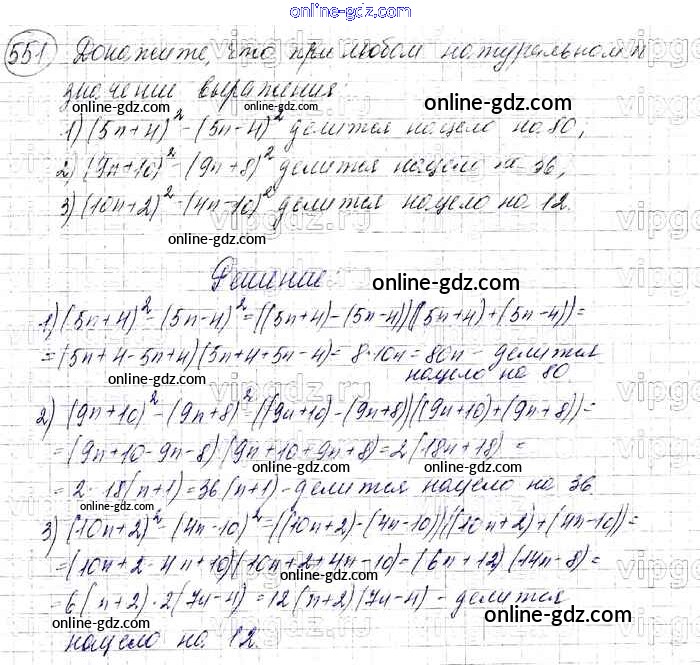 online-gdz.com
551 Докажите, что при любом натуральном n
значении выражения:
online-gdz.com
1) (5n+4)² - (5n-4)² делится нацело на 80,
2) (9n+10)² - (9n+8)² делится нацело на 36,
3) (10n+2)² - (4n-10)² делится нацело на 12.
online-gdz.com
Решение:
online-gdz.com
1) (5n+4)² - (5n-4)² = ((5n+4)-(5n-4))((5n+4)+(5n-4))=
=(5n+4-5n+4)(5n+4+5n-4)= 8·10n=80n - делится
online-gdz.com нацело на 80.
online-gdz.com
2) (9n+10)² - (9n+8)² = ((9n+10)-(9n+8))((9n+10)+(9n+8))=
=(9n+10-9n-8)(9n+10+9n+8)=2(18n+18)=
online-gdz.com
=2·18(n+1)=36(n+1) - делится нацело на 36.
online-gdz.com
3) (10n+2)² - (4n-10)² = ((10n+2)-(4n-10))((10n+2)+(4n-10))=
=(10n+2-4n+10)(10n+2+4n-10)=(6n+12)(14n-8)=
online-gdz.com
=6(n+2)·2(7n-4)=12(n+2)(7n-4) - делится
online-gdz.com
нацело на 12.
online-gdz.com